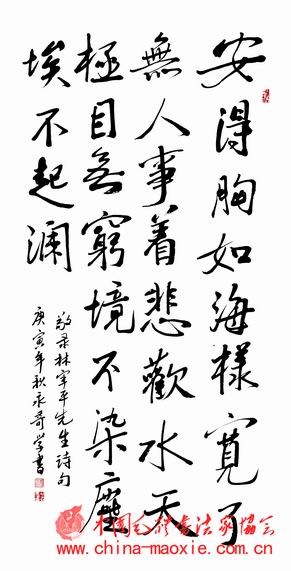 安得胸如海樣寬了
無人事着悲歡水天
極目無窮境不染塵
埃不起澜
敬录林宰平先生诗句
庚寅年秋永奇学書
中国毛体书法家协会
www.china-maoxie.com